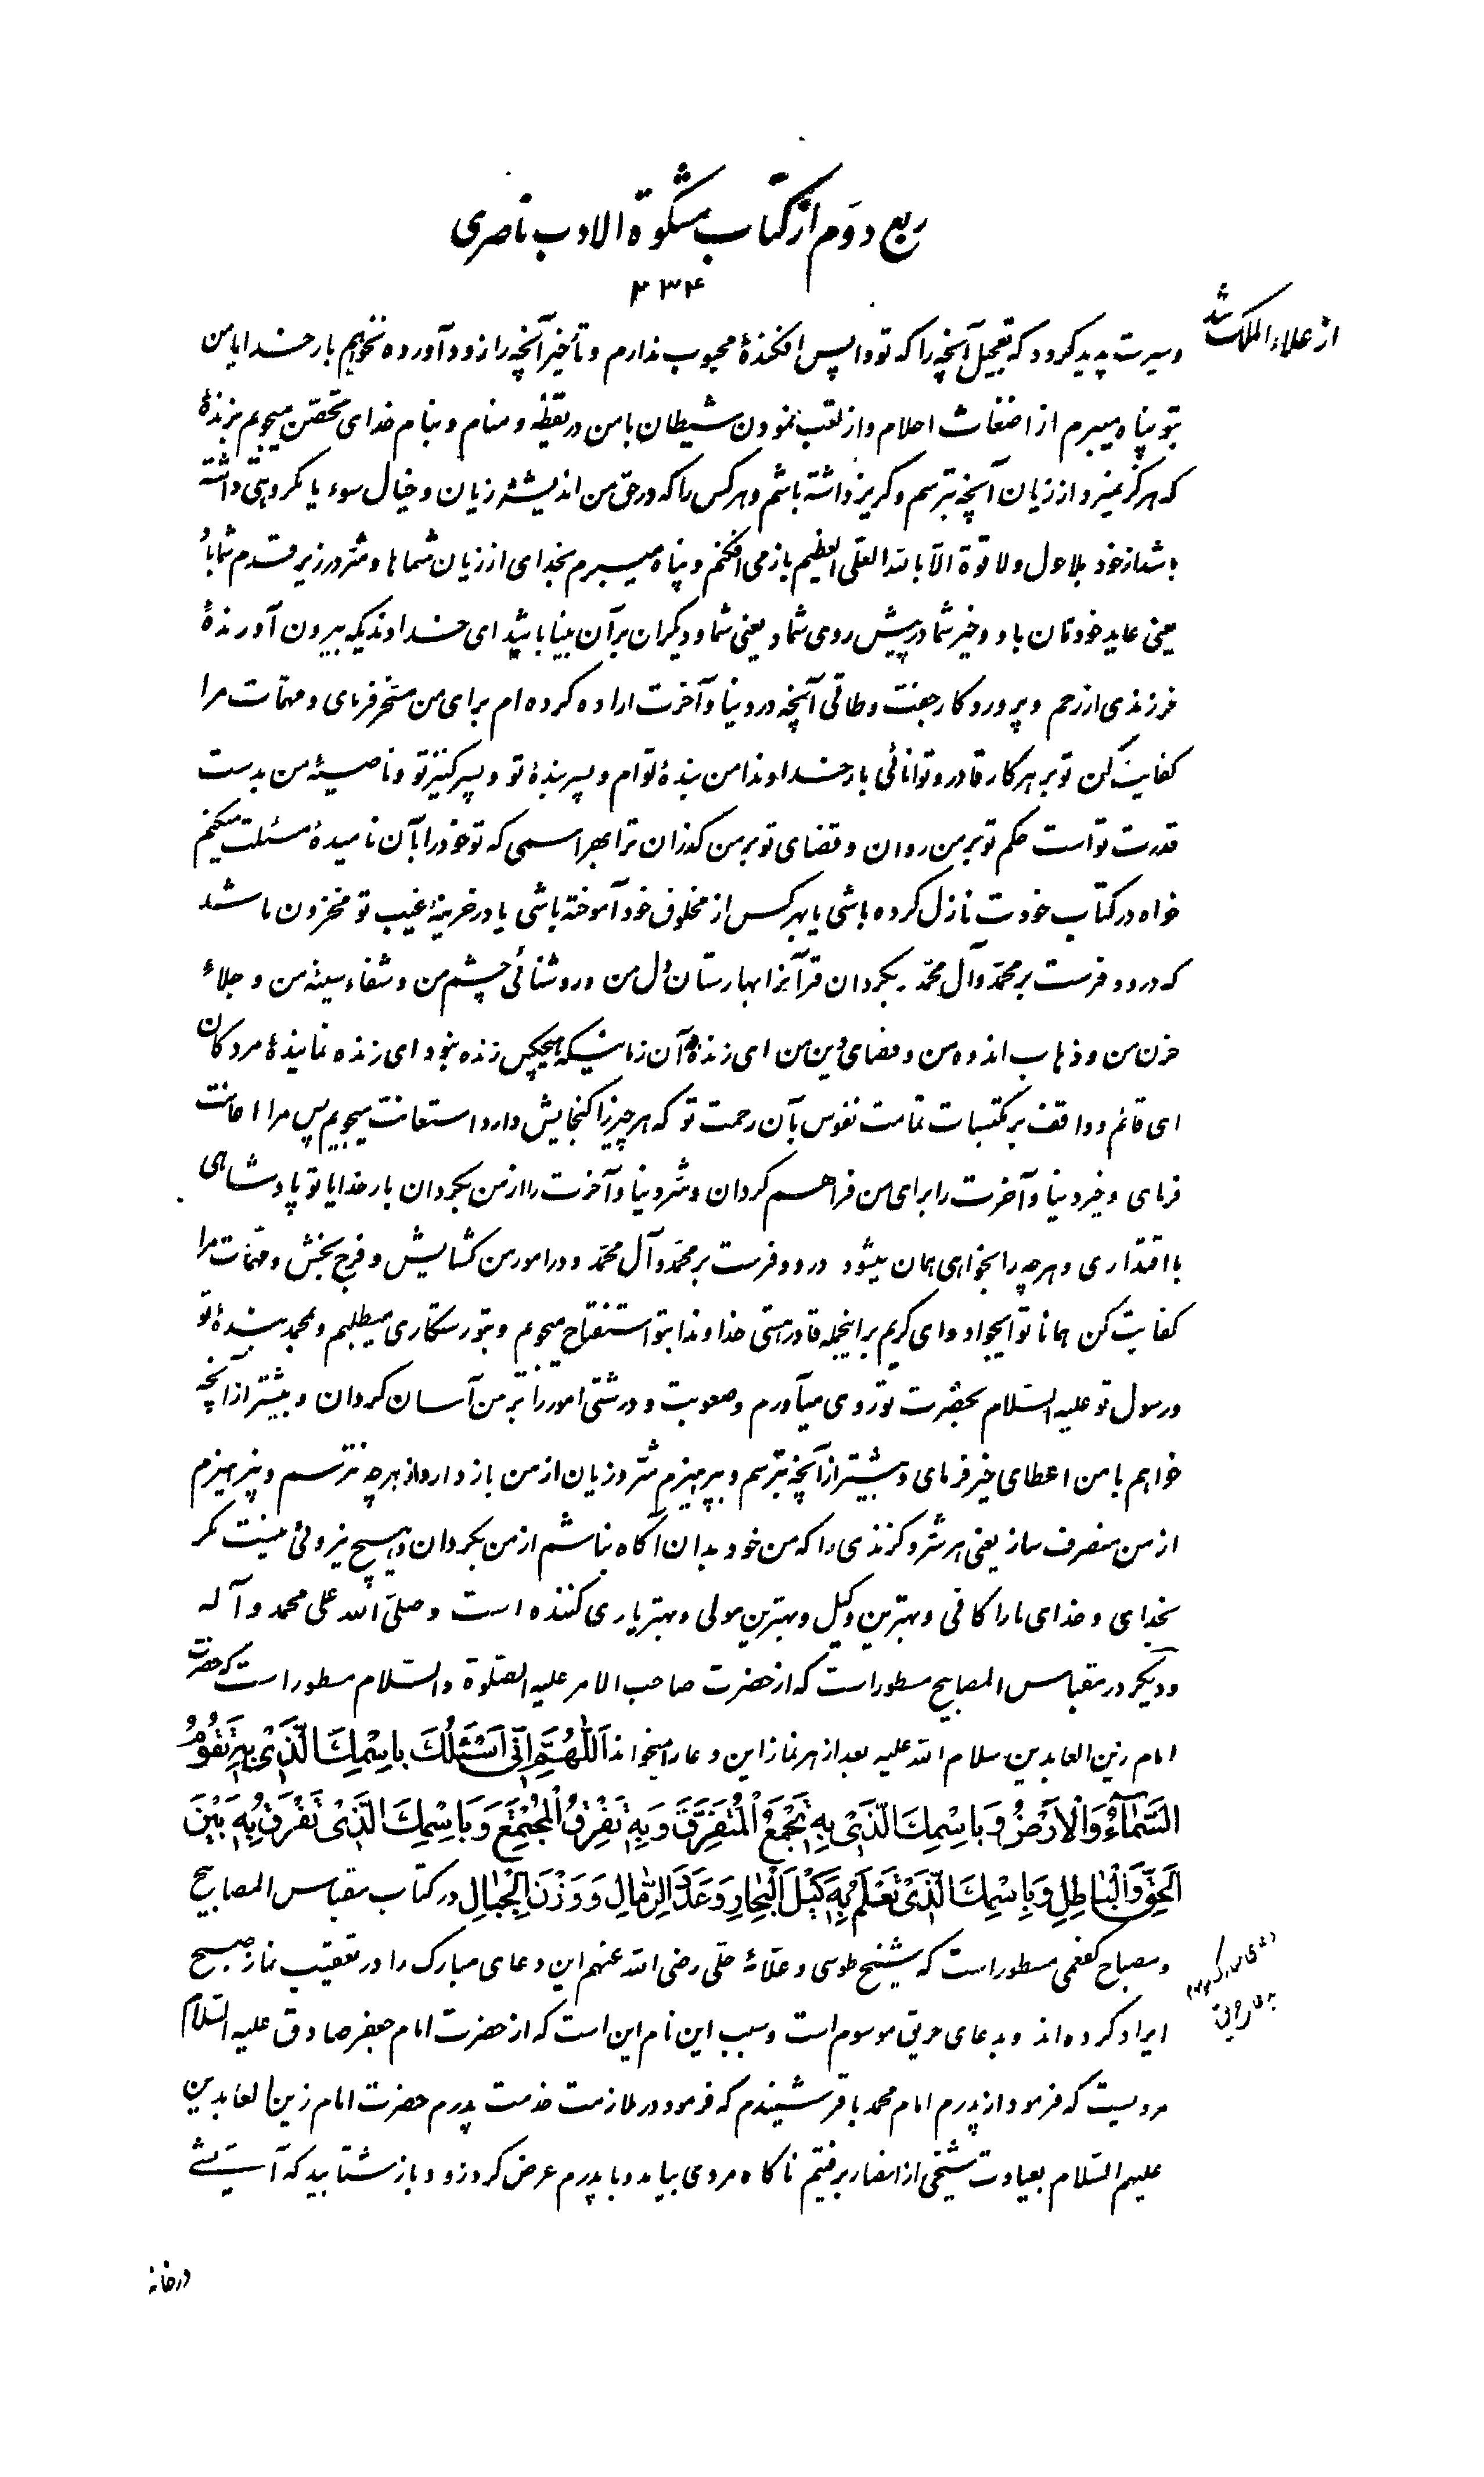 ربع دوّم از کتاب مشکوة الادب ناصری
۲۳۴
از علاء الملک شد
و سیرت پدید کرود که تعجیل آنچه را که تو واپس افکندهٔ محبوب ندارم و تأخیر آنچه را زود آورده نخواهم بار خدایا من
بتو پناه میبرم از اضغاث احلام و از لعب نمودن شیطان با من در یقظه و منام و بنام خدای تحصّن میجویم بزندهٔ
که هرگز نمیرد از زیان آنچه بترسم و گریز داشته باشم و هر کس را که در حق من اندیشهٔ زیان و خیال سوء یا مکروهی داشته
باشد از خود بلا حول و لا قوة الّا بالله العلی العظیم باز می افکنم و پناه میبرم بخدای از زیان شماها و شرّ در زیر قدم شما باد
یعنی عاید خودتان باد و خیر شما در پیش روی شما د یعنی شما و دیگران بر آن بینا باشید ای خداوندیکه بیرون آورندهٔ
فرزندی از رحم و پروردگار جفت و طاقی آنچه در دنیا و آخرت اراده کرده ام برای من مسخّر فرمای و مهمّات مرا
کفایت کن تو بر هر کار قادر و توانائی بار خداوندا من بندهٔ توام و پسر بندهٔ تو و پسر کنیز تو و ناصیهٔ من بدست
قدرت تو است حکم تو بر من روان و قضای تو بر من گذران ترا بهر اسمی که تو خود را بآن نامیدهٔ مسئلت میکنم
خواه در کتاب خودت نازل کرده باشی یا بهر کس از مخلوق خود آموخته باشی یا در خزینهٔ غیب تو مخزون باشد
که درود فرست بر محمّد و آل محمّد بگردان قرآنرا بهارستان دل من و روشنائی چشم من و شفاء سینه من و جلاء
حزن من و ذهاب اندوه من و قضای دین من ای زندهٔ آن زمانیکه هیچکس زنده نبود ای زنده نمایندهٔ مردگان
ای قائم و واقف بر مکتسبات تمامت نفوس بآن رحمت تو که هر چیز را گنجایش دارد استعانت میجویم پس مرا اعانت
فرمای و خیر دنیا و آخرت را برای من فراهم گردان و شرّ دنیا و آخرت را از من بگردان بار خدایا تو پادشاهی
با اقتداری و هر چه را بخواهی همان میشود درود فرست بر محمّد و آل محمّد و در امور من گشایش و فرج بخش و مهمّات مرا
کفایت کن همانا تو ایجواد و ای کریم بر اینجمله قادر هستی خداوندا بتو استفتاح میجویم و بتو رستگاری میطلبم و بمحمد بندهٔ تو
و رسول تو علیه السّلام بحضرت تو روی میآورم و صعوبت و درشتی امور را بر من آسان گردان و بیشتر از آنچه
خواهم با من اعطای خیر فرمای و بیشتر از آنچه بترسم و بپرهیزم شرّ و زیان از من باز دار و از هر چه نترسم و نپرهیزم
از من منصرف ساز یعنی هر شرّ و گزندی را که من خود بدان آگاه نباشم از من بگردان و هیچ نیروئی نیست مگر
بخدای و خدای ما را کافی و بهترین وکیل و بهترین مولی و بهتر یاری کننده است و صلّی الله علی محمد و آله
و دیگر در مقباس المصابیح مسطور است که از حضرت صاحب الامر علیه الصّلوة و السّلام مسطور است که حضرت
امام زین العابدین سلام الله علیه بعد از هر نماز این دعا را میخواند اَللّٰهُمَّ اِنّی اَسْئَلُكَ بِاسْمِكَ الَّذی بِهِ تَقُومُ
السَّمآءُ وَالْاَرْضُ وَبِاسْمِكَ الَّذی بِهِ تَجْمَعُ الْمُتَفَرِّقَ وَبِهِ تُفَرِّقُ الْمُجْتَمِعَ وَبِاسْمِكَ الَّذی تُفَرِّقُ بِهِ بَیْنَ
الْحَقِّ وَالْباطِلِ وَبِاسْمِكَ الَّذی تَعْلَمُ بِهِ كَیْلَ الْبِحارِ وَعَدَدَ الرِّمالِ وَوَزْنَ الْجِبالِ در کتاب مقباس المصابیح
و مصباح کفعمی مسطور است که شیخ طوسی و علّامهٔ حلّی رضی الله عنهم این دعای مبارک را در تعقیب نماز صبح
ایراد کرده اند و بدعای حریق موسوم است و سبب این نام این است که از حضرت امام جعفر صادق علیه السّلام
مرویست که فرمود از پدرم امام محمد باقر شنیدم که فرمود در ملازمت خدمت پدرم حضرت امام زین العابدین
علیهم السّلام بعیادت شیخی از انصار برفتیم ناگاه مردی بیامد و با پدرم عرض کرد زود باز شتابید که آتشی
در خانه